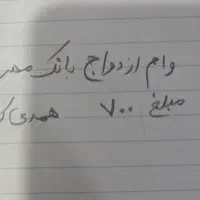 وام ازدواج بانک مهر
مبلغ ۷۰۰ همدی